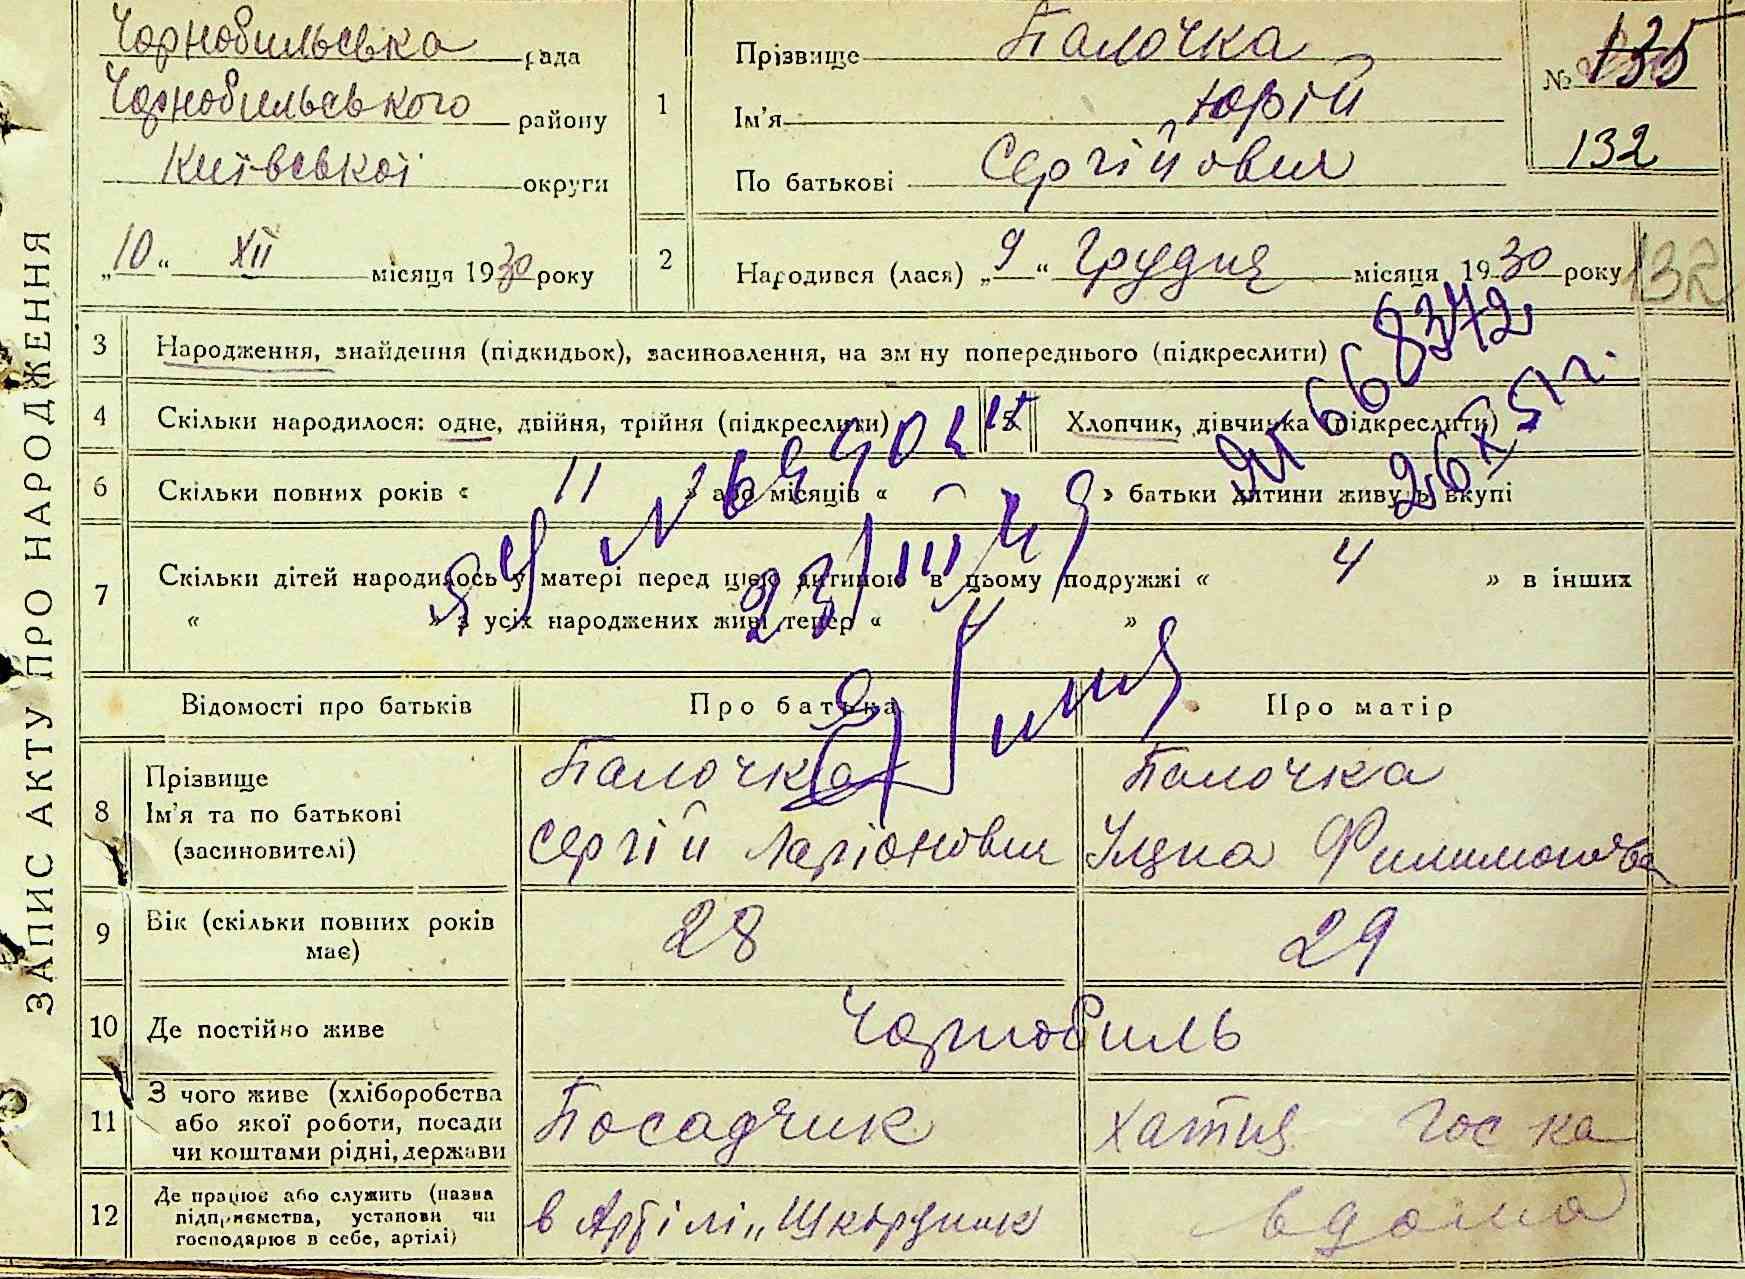 ЗАПИС АКТУ ПРО НАРОДЖЕННЯ
Чорнобильська рада
Чорнобильського району
Київської округи
„10“ XII місяця 1930 року
1
Прізвище Палочка
Ім'я Юрій
По батькові Сергійович
№ 135
132
2
Народився (лася) „9“ Грудня місяця 1930 року
132
3 Народження, знайдення (підкидьок), засиновлення, на зм ну попереднього (підкреслити)
4 Скільки народилося: одне, двійня, трійня (підкреслити) 5 Хлопчик, дівчинка (підкреслити)
6 Скільки повних років « 11 » або місяців « — » батьки дитини живуть вкупі
7 Скільки дітей народилось у матері перед цією дитиною в цьому подружжі « 4 » в інших
« » з усіх народжених живі тепер « 4 »
668372
26 X 51 г.
23/III
Відомості про батьків Про батька Про матір
8 Прізвище
Ім'я та по батькові
(засиновителі)
Палочка
Сергій Ларіонович
Палочка
Уляна Филимонова
9 Вік (скільки повних років
має)
28 29
10 Де постійно живе Чорнобиль
11 З чого живе (хліборобства
або якої роботи, посади
чи коштами рідні, держави
Посадчик
хатня гос ка
12 Де працює або служить (назва
підприємства, установи чи
господарює в себе, артілі)
в Артілі „Шкірник
вдома